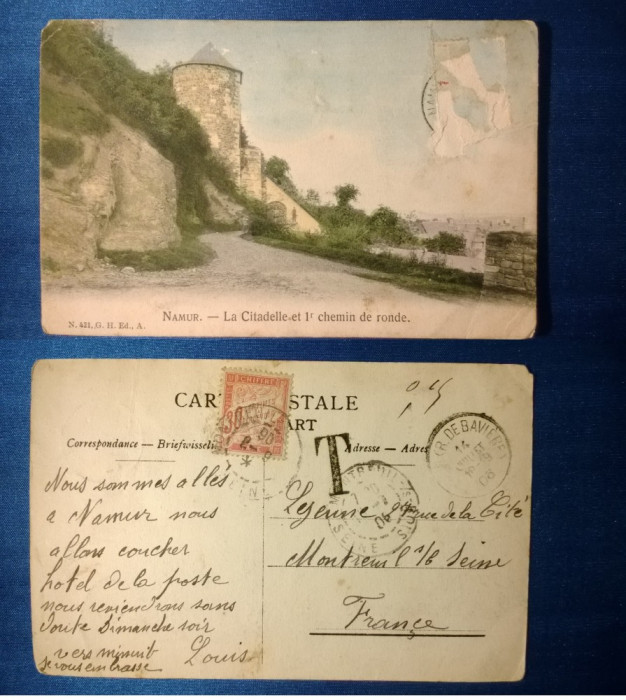 NAMUR. — La Citadelle et 1r chemin de ronde.
N. 421. G. H. Ed., A.
CARTE POSTALE
Correspondance — Briefwisseling
Adresse — Adres
CHIFFRE
30
T
0,15
MONTREUIL-SOUS-
SEINE
14
08
Nous sommes allés
a Namur nous
allons coucher
hotel de la poste
nous reviendrons sans
doute Dimanche soir
vers minuit
je vous embrasse Louis
Lejeune 9 rue de la Cité
Montreuil s/s Seine
France